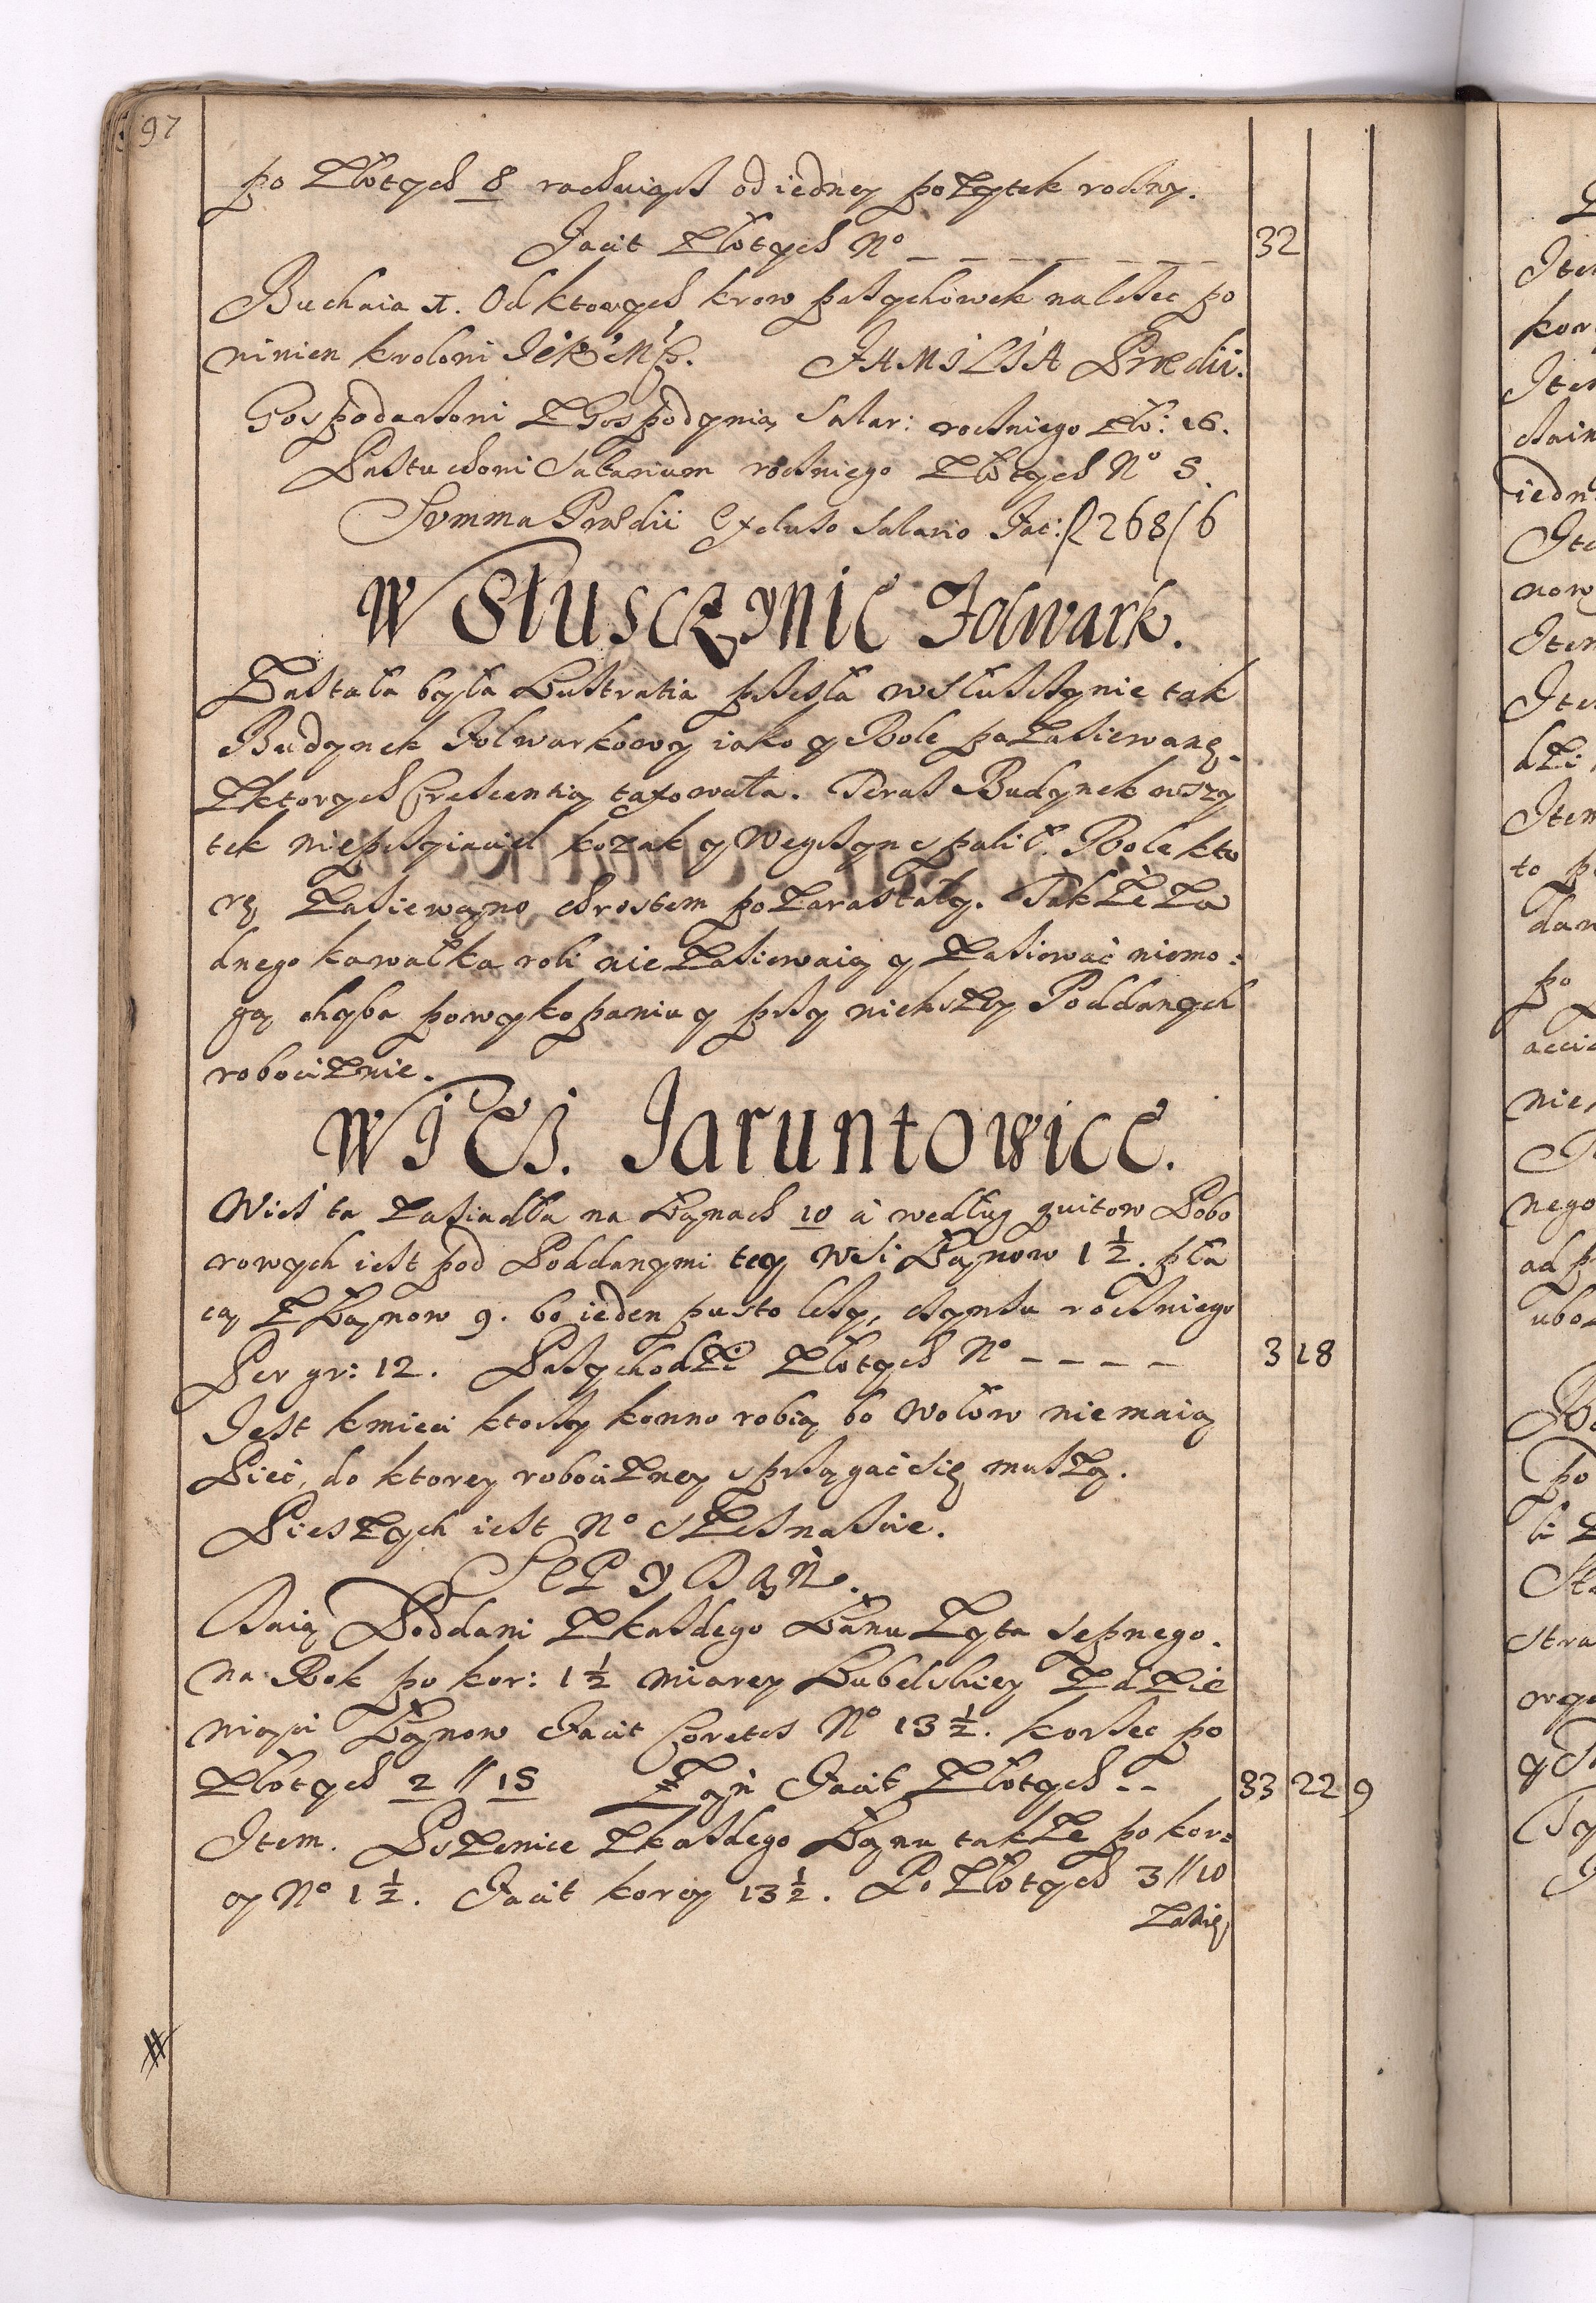 97
po Złotych 8 rachuiąc od iedney pożytek roczny.
Facit Złotych No _ _ _ _ _ _ _ _ 32
Buchaia 1. Od ktorych krow przychowek należec po
ninien
FAMILIA Prædii.
Gospodarzoni z Gospodynią Salar: roczniego zło: 16.
Pastuchoni Salarium roczniego Złotych No 5.
Summa Prædii Excluso Salario Fac: 268/6
W Słusczynie Folwark.
Zastała była Lustratia przeszła w Słusczynie tak
Budynek Folwarkowy iako y Role pozasiewane.
Z ktorych Crescentią taxowała. Teraz Budynek wszy
tek nieprzyiaciel kozak y Węgrzyn spalił. Role kto
re zasiewano chrostem pozarastały. Tak że ża
dnego kawałka roli nie zasiewaią y zasiewać niemo:
gą chyba po wykopaniu y przy Poddanych
robociznie.
WIES. Jaruntowice.
Wieś ta zasiadła na Łanach 10 a według quitow Pobo
rowych iest pod Poddanymi tey Wsi Łanow 1 1/2. pła
cą z Łanow 9. bo ieden pusto leży, czynszu roczniego
Per gr: 12. Przychodzi Złotych No _ _ _ _ 3 18
Jest kmieci ktorzy konno robią bo Wołow nie maią
Pieć, do ktorey robocizney sprzągać się muszą.
Pieszych iest No szesnascie.
SEP Y DAŃ.
Daią Poddani z każdego Łanu Żyta sepnego.
na Rok po kor: 1 1/2 miarey Lubelskiey z dzie
wiąci Łanow Facit Coretes No 13 1/2. korzec po
Złotych 2 // 15 Facit Złotych - - 33 22 9
Item. Pszenice z każdego Łanu także po kor=
cy No 1 1/2. Facit korcy 13 1/2. Po Złotych 3 // 10